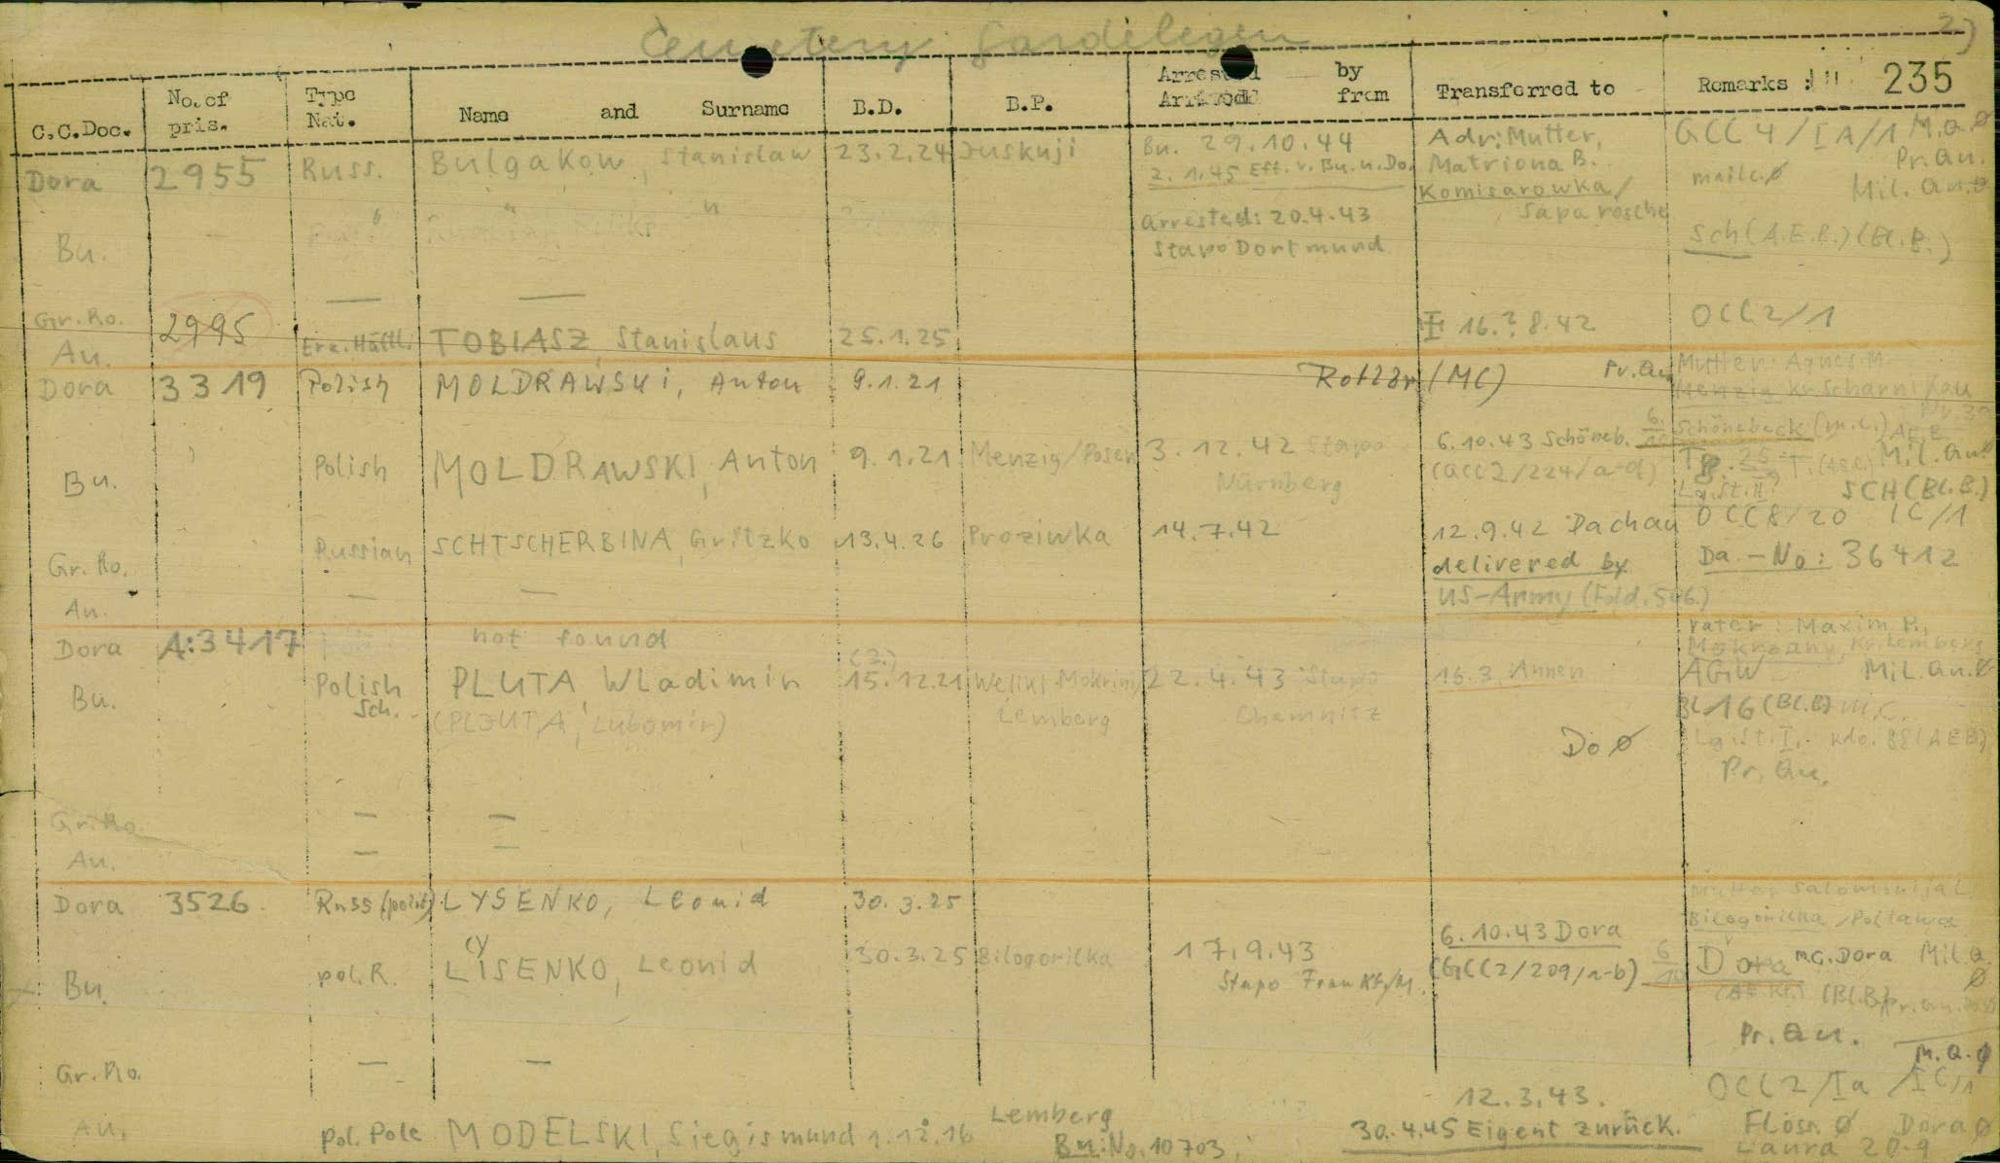 Cemetery Gardelegen 2)
C.C.Doc. No. of pris. Type Nat. Name and Surname B.D. B.P. Arrested by Arrived from Transferred to Remarks : 235
Dora 2955 Russ. Bulgakow, Stanislaw 23.2.24 Juskuji Bu. 29.10.44 Adr: Mutter, GCC 4/IA/1 M.a.Ø
2.1.45 Eff. v. Bu. n. Do. Matriona B. Pr. au.
Komisarowka/ mailc.Ø Mil. au.Ø
Saparosche
Bu. " " arrested: 20.4.43 Sch (A.E.B.) (Bl.B.)
Stapo Dortmund
Gr.Ro. — — OCC2/1
Au. 2995 Erz. Häftl. TOBIASZ, Stanislaus 25.1.25 16.?8.42
Dora 3319 Polish MOLDRAWSKI, Anton 9.1.21 (MC) Pr. au Mutter: Agnes M.
Menzig Kr. Scharnikau
Bu. Polish MOLDRAWSKI, Anton 9.1.21 Menzig/Posen 3.12.42 Stapo 6.10.43 Schöneb. 6/10 Schönebeck (m.c.) AEB
Nürnberg (GCC2/224/a-d) Mil. au.Ø
SCH (Bl.B.)
Gr. Ro. Russian SCHTSCHERBINA, Gritzko 13.4.26 Proziwka 14.7.42 12.9.42 Dachau OCC8/20 IC/1
delivered by Da.-No: 36412
Au. — — US-Army (Fold. 506.)
Dora A:3417 not found Vater: Maxim P.,
Mokrzany, Kr. Lemberg
Bu. Polish PLUTA, Wladimir (3.) 15.12.21 Welikt Mokrini 22.4.43 Stapo 16.3. Annen AGiW Mil. au.Ø
Sch. (PLJUTA, Lubomir) Lemberg Chemnitz BL16 (Bl.B) m.c.
Do Ø Lg.st.I, Kdo. 88 (AEB)
Pr. au.
Gr. Ro. — —
Au. — —
Dora 3526 Russ (polit) LYSENKO, Leonid 30.3.25 Mutter L.
6.10.43 Dora Bilogorilka/Poltawa
Bu. pol. R. LISENKO, Leonid (y 30.3.25 Bilogorilka 17.9.43 (GCC2/209/a-b) 6/10 Dora m.c. Dora Mil. a. Ø
Stapo Frankft/M. (Bl.B) Pr. au.
Pr. au.
Gr. Ro. — — M.a.Ø
12.3.43. OCC2/Ia/IC/1
Au. pol. Pole MODELSKI, Siegismund 1.12.16 Lemberg 30.4.45 Eigent zurück. Floss. Ø Dora Ø
Bu: No. 10703. Laura 20.9